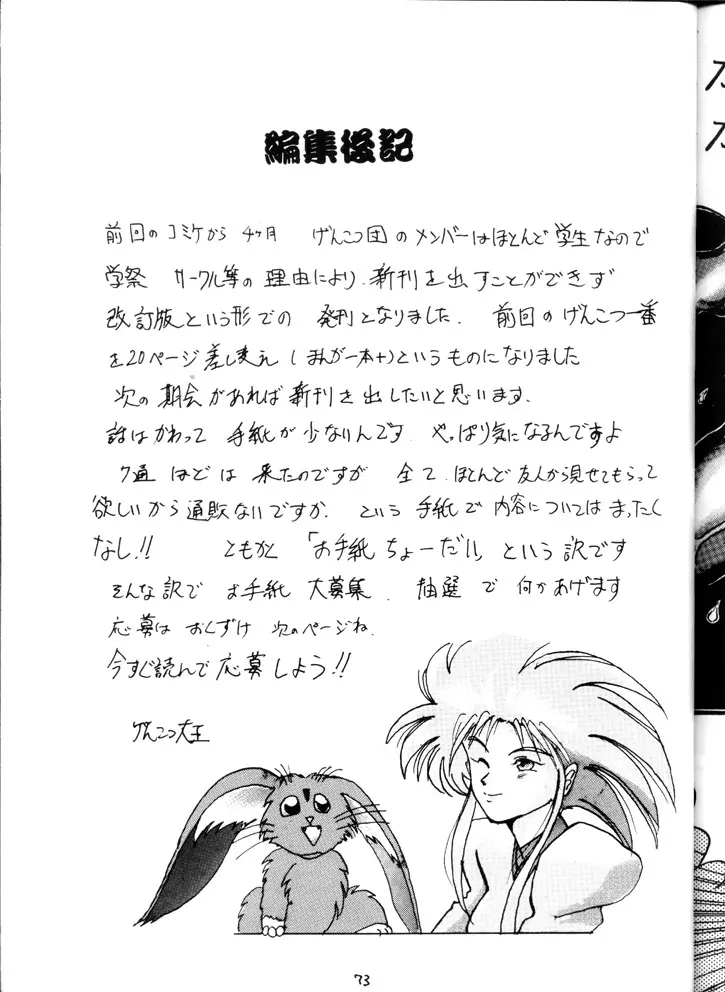 編集後記
前回のコミケから 4ヶ月 げんこつ団のメンバーはほとんど学生なので
学祭 サークル等の理由により、新刊を出すことができず
改訂版という形での 発刊となりました. 前回のげんこつ一番
を20ページ差し変え (まんが一本+)というものになりました
次の期会があれば新刊を出したいと思います.
話はかわって 手紙が少ないんです やっぱり気になるんですよ
7通 ほどは 来たのですが 全て、ほとんど友人から見せてもらって
欲しいから通販ないですか. という 手紙で 内容についてはまったく
なし!! ともかく 「お手紙 ちょーだい」 という訳です
そんな訳で お手紙 大募集. 抽選で 何かあげます
応募は おくずけ 次のページね.
今すぐ読んで応募しよう!!
げんこつ大王
73